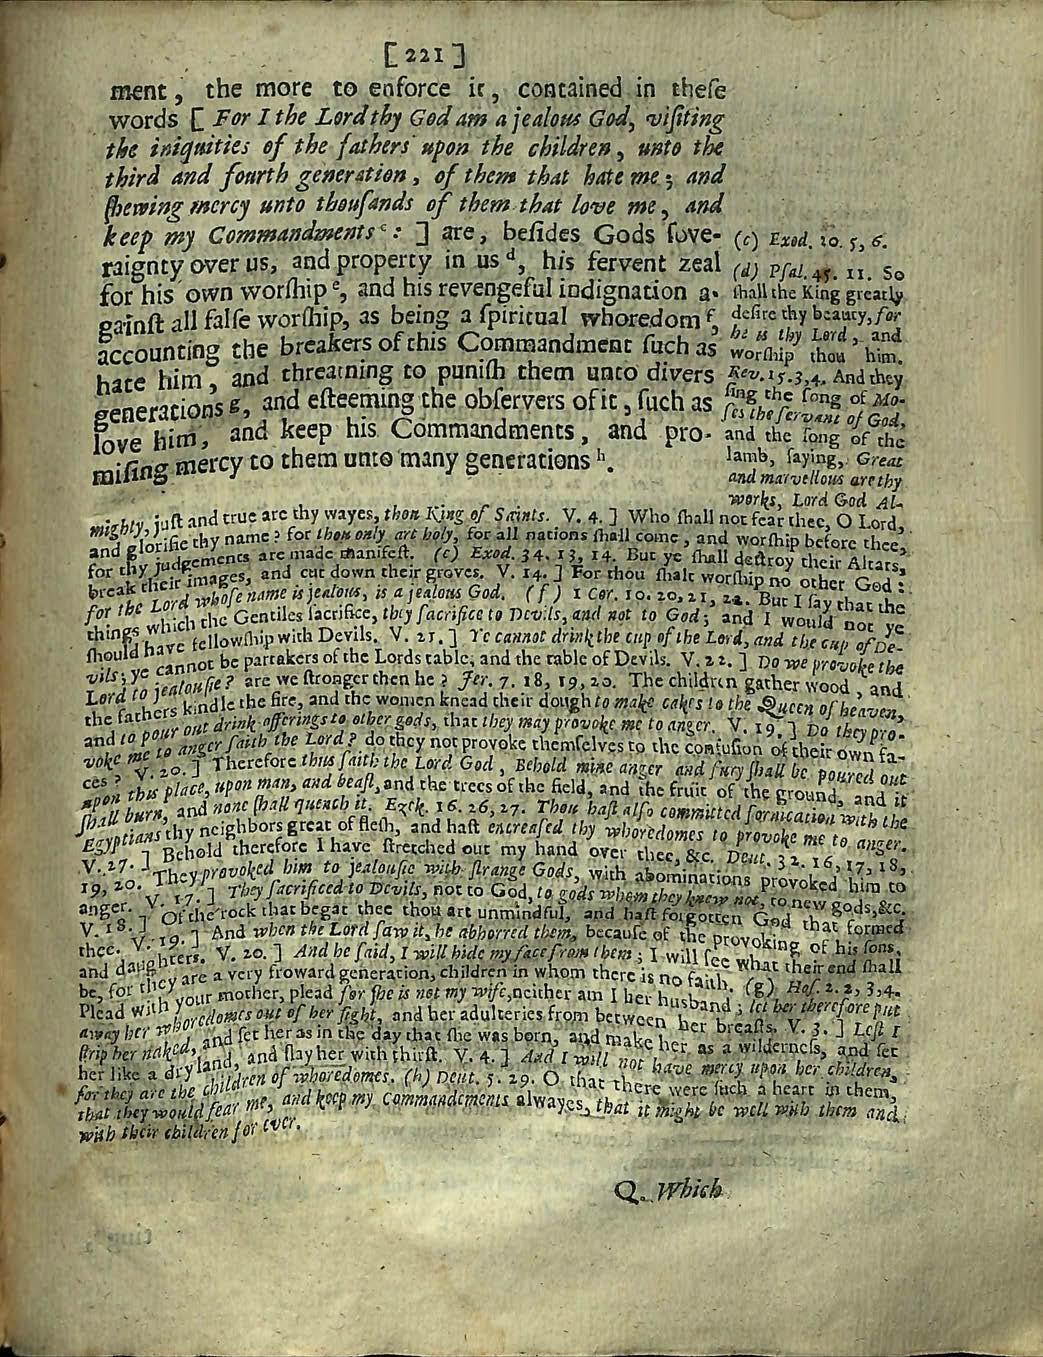 [ 221 ]
ment, the more to enforce it, contained in theſe
words [ For I the Lord thy God am a jealous God, viſiting
the iniquities of the fathers upon the children, unto the
third and fourth generation, of them that hate me; and
ſhewing mercy unto thouſands of them that love me, and
keep my Commandments c : ] are, beſides Gods ſove-
raignty over us, and property in us d, his fervent zeal
for his own worſhip e, and his revengeful indignation a-
gainſt all falſe worſhip, as being a ſpiritual whoredom f,
accounting the breakers of this Commandment ſuch as
hate him, and threatning to puniſh them unto divers
generations g, and eſteeming the obſervers of it, ſuch as
love him, and keep his Commandments, and pro-
miſing mercy to them unto many generations h.
(c) Exod. 20. 5, 6.
(d) Pſal. 45. 11. So
ſhall the King greatly
deſire thy beauty, for
he is thy Lord, and
worſhip thou him.
Rev. 15. 3, 4. And they
ſing the ſong of Mo-
ſes the ſervant of God,
and the ſong of the
lamb, ſaying, Great
and marvellous are thy
works, Lord God Al-
mighty, juſt and true are thy wayes, thou King of Saints. V. 4. ] Who ſhall not fear thee, O Lord,
and glorifie thy name? for thou only art holy, for all nations ſhall come, and worſhip before thee,
for thy judgements are made manifeſt. (e) Exod. 34. 13, 14. But ye ſhall deſtroy their Altars,
break their images, and cut down their groves. V. 14. ] For thou ſhalt worſhip no other God:
for the Lord whoſe name is jealous, is a jealous God. (f) 1 Cor. 10. 20, 21, 22. But I ſay that the
things which the Gentiles ſacrifice, they ſacrifice to Devils, and not to God; and I would not ye
ſhould have fellowſhip with Devils. V. 21. ] Ye cannot drink the cup of the Lord, and the cup of De-
vils; ye cannot be partakers of the Lords table, and the table of Devils. V. 22. ] Do we provoke the
Lord to jealouſie? are we ſtronger then he? Jer. 7. 18, 19, 20. The children gather wood, and
the fathers kindle the fire, and the women knead their dough to make cakes to the Queen of heaven,
and to pour out drink-offerings to other gods, that they may provoke me to anger. V. 19. ] Do they pro-
voke me to anger ſaith the Lord? do they not provoke themſelves to the confuſion of their own fa-
ces? V. 20. ] Therefore thus ſaith the Lord God, Behold mine anger and fury ſhall be poured out
upon this place, upon man, and beaſt, and the trees of the field, and the fruit of the ground, and it
ſhall burn, and none ſhall quench it. Ezek. 16. 26, 27. Thou haſt alſo committed fornication with the
Egyptians thy neighbors great of fleſh, and haſt encreaſed thy whoredomes to provoke me to anger.
V. 27. ] Behold therefore I have ſtretched out my hand over thee, &c. Deut. 32. 16, 17, 18,
19, 20. They provoked him to jealouſie with ſtrange Gods, with abominations provoked him to
anger. V. 17. ] They ſacrificed to Devils, not to God, to gods whom they knew not, to new gods, &c.
V. 18. ] Of the rock that begat thee thou art unmindful, and haſt forgotten God that formed
thee. V. 19. ] And when the Lord ſaw it, he abhorred them, becauſe of the provoking of his ſons,
and daughters. V. 20. ] And he ſaid, I will hide my face from them; I will ſee what their end ſhall
be, for they are a very froward generation, children in whom there is no faith. (g) Hoſ. 2. 2, 3, 4.
Plead with your mother, plead for ſhe is not my wife, neither am I her husband; let her therefore put
away her whoredomes out of her ſight, and her adulteries from between her breaſts. V. 3. ] Leſt I
ſtrip her naked, and ſet her as in the day that ſhe was born, and make her as a wilderneſs, and ſet
her like a dry land, and ſlay her with thirſt. V. 4. ] And I will not have mercy upon her children,
for they are the children of whoredomes. (h) Deut. 5. 29. O that there were ſuch a heart in them,
that they would fear me, and keep my commandements alwayes, that it might be well with them and
with their children for ever.
Q. Which